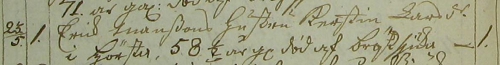 71 år gl: död af
23/5 1. Erich Månssons hustru Kerstin Larsdr
i Hörsta, 58 1/2 år gl död af bröstsjuka — 1.